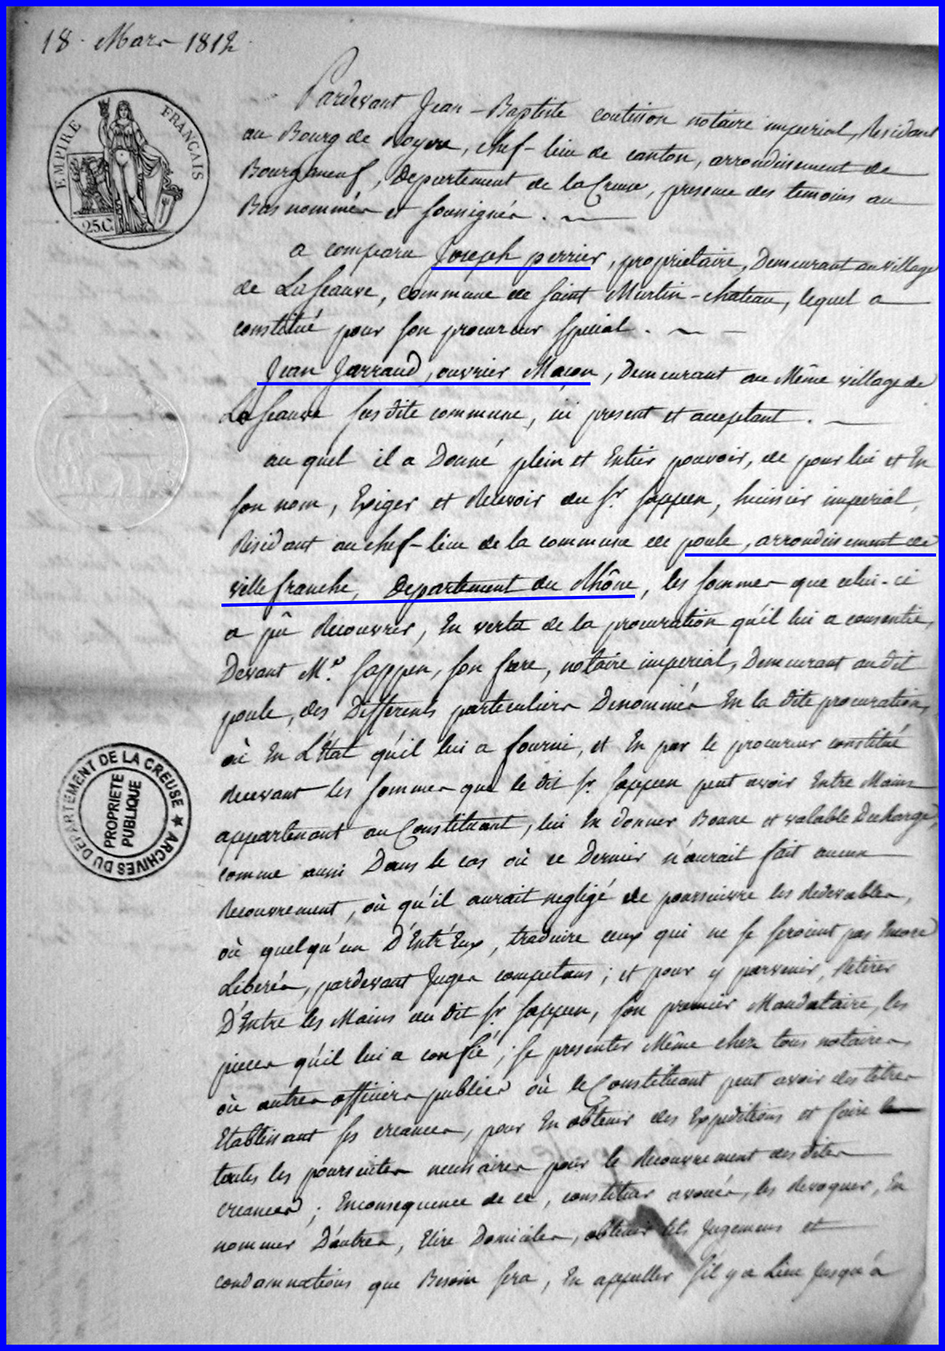 18. Mars 1812.
EMPIRE FRANÇAIS
25.C.
Pardevant Jean-Baptiste coutisson notaire imperial, Residant
au Bourg de Royere, chef-lieu de canton, arrondissement de
Bourganeuf, Departement de la Creuse, presence des temoins au
Bas nommés et soussignés.
a comparu Joseph perrier, proprietaire, Demeurant au village
de Lafeauve, commune de Saint Martin-chateau, lequel a
constitué pour son procureur spécial.
Jean Jarraud, ouvrier Maçon, Demeurant au Même village de
Lafeauve susdite commune, ici present et acceptant.
au quel il a Donné plein et Entier pouvoir, de pour lui et En
son nom, Exiger et Recevoir du Sr. Sappen, huissier imperial,
Résidant au chef-lieu de la commune de poule, arrondissement de
villefranche, Departement du Rhône, les sommes que celui-ci
a pû Recouvrer, En vertu de la procuration qu'il lui a consentie,
Devant Me. Sappen, son frere, notaire imperial, Demeurant audit
poule, des Differents particuliers Denommés En la dite procuration,
où En L'Etat qu'il lui a fourni, et En par le procureur constitué
Recevant les sommes que le dit Sr. Sappen peut avoir Entre Mains
appartenant au Constituant, lui En donner Bonne et valable Decharge,
comme aussi Dans le cas où ce Dernier n'aurait fait aucun
Recouvrement, où qu'il aurait negligé de poursuivre les redevables,
où quelqu'un D'Entr'Eux, traduire ceux qui ne se seroient pas Encore
Libérés, pardevant Juges competans; et pour y parvenir, Retirer
D'Entre les Mains du dit Sr. Sappen, son premier Mandataire, les
pieces qu'il lui a confié; se presenter Même chez tous notaires
où autres officiers publics où le Constituant peut avoir des titres
Etablissant ses creances, pour En obtenir des Expeditions et faire
toutes les poursuites necessaires pour le Recouvrement desdites
creances; Enconsequence de ce, constituer avoués, les revoquer, En
nommer D'autres, Elire Domiciles, obtenir tels Jugemens et
condamnations que Besoin sera, En appeller s'il y a Lieu Jusqu'à
ARCHIVES DU DEPARTEMENT DE LA CREUSE ★
PROPRIETE
PUBLIQUE